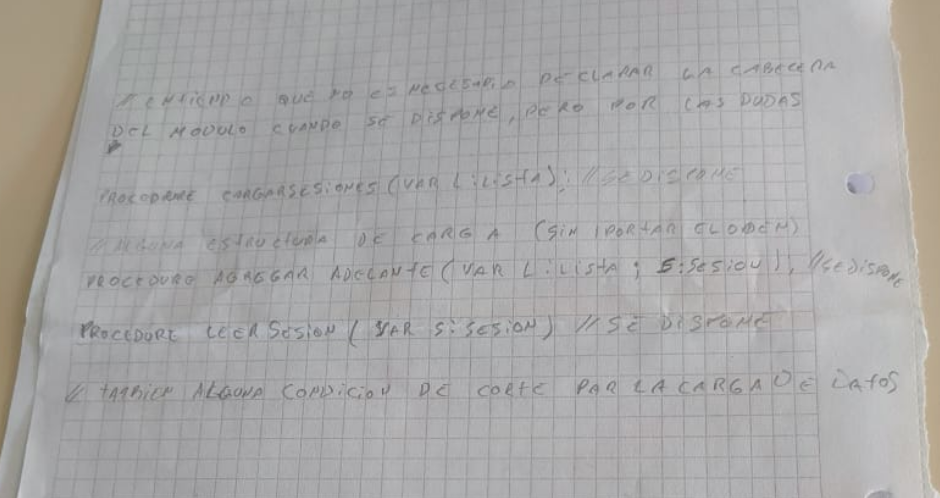 // ENTIENDO QUE NO ES NECESARIO DECLARAR LA CABECERA
DEL MODULO CUANDO SE DISPONE, PERO POR LAS DUDAS
PROCEDURE CARGARSESIONES (VAR L: LISTA); // SE DISPONE
// ALGUNA ESTRUCTURA DE CARGA (SIN IPORTAR EL ORDEN)
PROCEDURE AGREGAR ADELANTE (VAR L: LISTA; S: SESION); // SE DISPONE
PROCEDURE LEER SESION ( VAR S: SESION) // SE DISPONE
// TAMBIEN ALGUNA CONDICION DE CORTE PAR LA CARGA DE DATOS